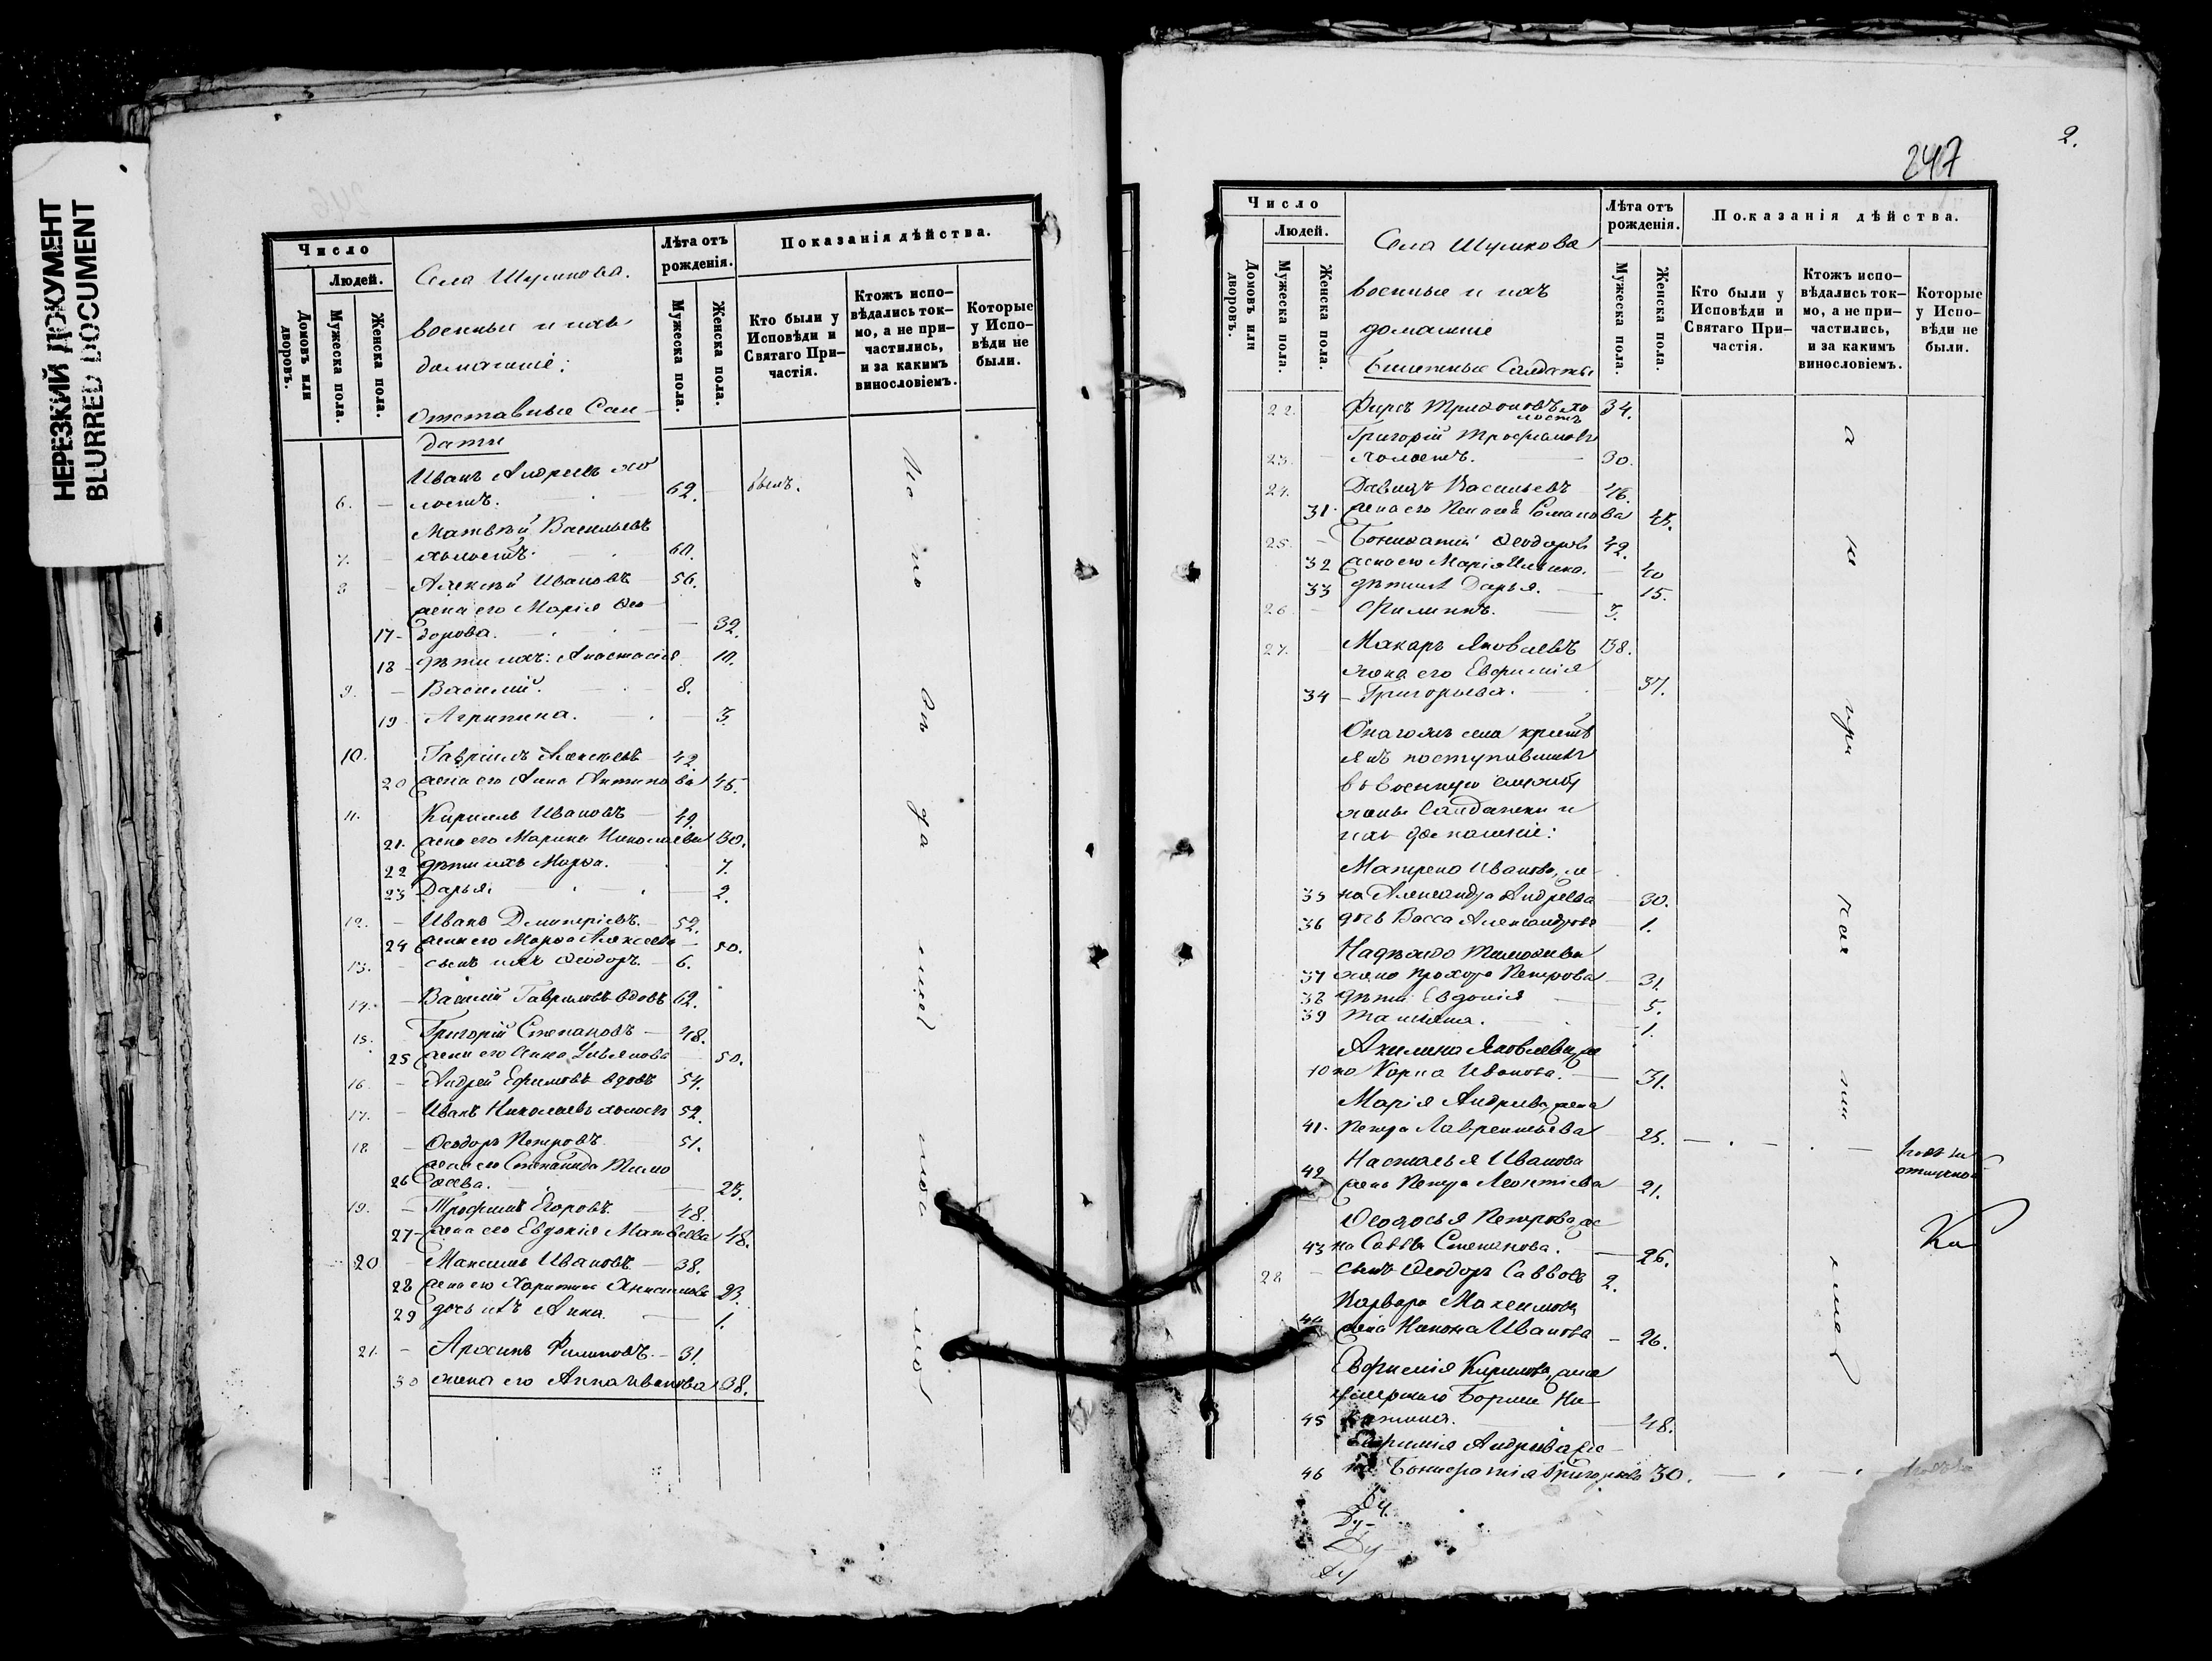 НЕРЕЗКИЙ ДОКУМЕНТ
BLURRED DOCUMENT
Число
Людей.
Домовъ или дворовъ.
Мужеска пола.
Женска пола.
Села Шуликова.
военные и ихъ
домашние:
Отставные Сол-
даты
Лѣта отъ рожденія.
Мужеска пола.
Женска пола.
Показанія дѣйства.
Кто были у Исповѣди и Святаго При-частія.
Ктожъ испо-вѣдались ток-мо, а не при-частились, и за какимъ винословіемъ.
Которые у Испо-вѣди не были.
Иванъ Андреевъ хо
6. - лостъ. 62. былъ.
Матвѣй Васильевъ
7. - холостъ. 60.
8 - Алексѣй Ивановъ 56.
жена его Марія Ѳео-
17 - дорова. 32.
18 - дѣти ихъ: Анастасія 10.
9. - Василій. 8.
19 - Агрипина. 3.
10. Гавріилъ Алексѣевъ 42.
20 жена его Анна Антипова 45.
11. Кириллъ Ивановъ 49.
21. жена его Марина Николаева 30.
22 дѣти ихъ Марѳа. 7.
23 Дарья. 2.
12. - Иванъ Димитріевъ. 52.
24 жена его Марѳа Алексеева 50.
13. - сынъ ихъ Ѳеодоръ. 6.
14. - Василій Гавриловъ вдовъ 62.
15. Григорій Степановъ 48.
25 жена его Анна Ульянова 50.
16. - Андрей Ефимовъ вдовъ 54.
17. - Иванъ Николаевъ холостъ 52.
18 - Ѳеодоръ Петровъ 51.
жена его Степанида Тимо
26 ѳеева. 23.
19. - Трофимъ Егоровъ. 48.
27 - жена его Евдокія Матвеева 48.
20 - Максимъ Ивановъ 38.
28 жена его Харитина 23.
29 дочь ихъ Анна. 1.
21. - Архипъ Филиповъ. 31.
30 жена его Анна Иванова 38.
2.
247
Число
Людей.
Домовъ или дворовъ.
Мужеска пола.
Женска пола.
Села Шуликова
военные и ихъ
домашние
Солдаты
Лѣта отъ рожденія.
Мужеска пола.
Женска пола.
Показанія дѣйства.
Кто были у Исповѣди и Святаго При-частія.
Ктожъ испо-вѣдались ток-мо, а не при-частились, и за какимъ винословіемъ.
Которые у Испо-вѣди не были.
22. Фирсъ хо 34.
лостъ
Григорій Трофимовъ
23. - холостъ. 30.
24. Давидъ Васильевъ 46.
31. жена его Романова 45.
25. - Ѳеодоровъ 42.
32 жена его Марія 40
33 дѣти ихъ Дарья. 15.
26. - Филиппъ. 3.
27. Макаръ Яковлевъ 38.
жена его Евфимія
34 - Григорьева. 37.
села крестья
поступившихъ
въ военную службу
жены Солдатки и
ихъ домашніе:
Матрена Иванова, же
35 на Александра Андреева 30.
36 дочь Васса Александрова 1.
Надежда Тимоѳеева
37 жена Прохора Петрова 31.
38 дѣти Евдокія 5.
39 Татьяна. 1.
Акилина Яковлева, же
40 на Карпа Иванова. 31.
Марія Андреева, жена
41. Петра Лаврентьева 25.
Настасья Иванова
42 жена Петра Леонтіева 21.
Ѳеодосья Петрова, же
43 на Саввы Степанова. 26.
28 - сынъ Ѳеодоръ Саввовъ 2.
Варвара Максимова
44 жена Никона Иванова 26.
Евфимія Кирилова, жена
45 48.
Евфимія Андреева, же
46 на Бонифатія Григорьева 30.